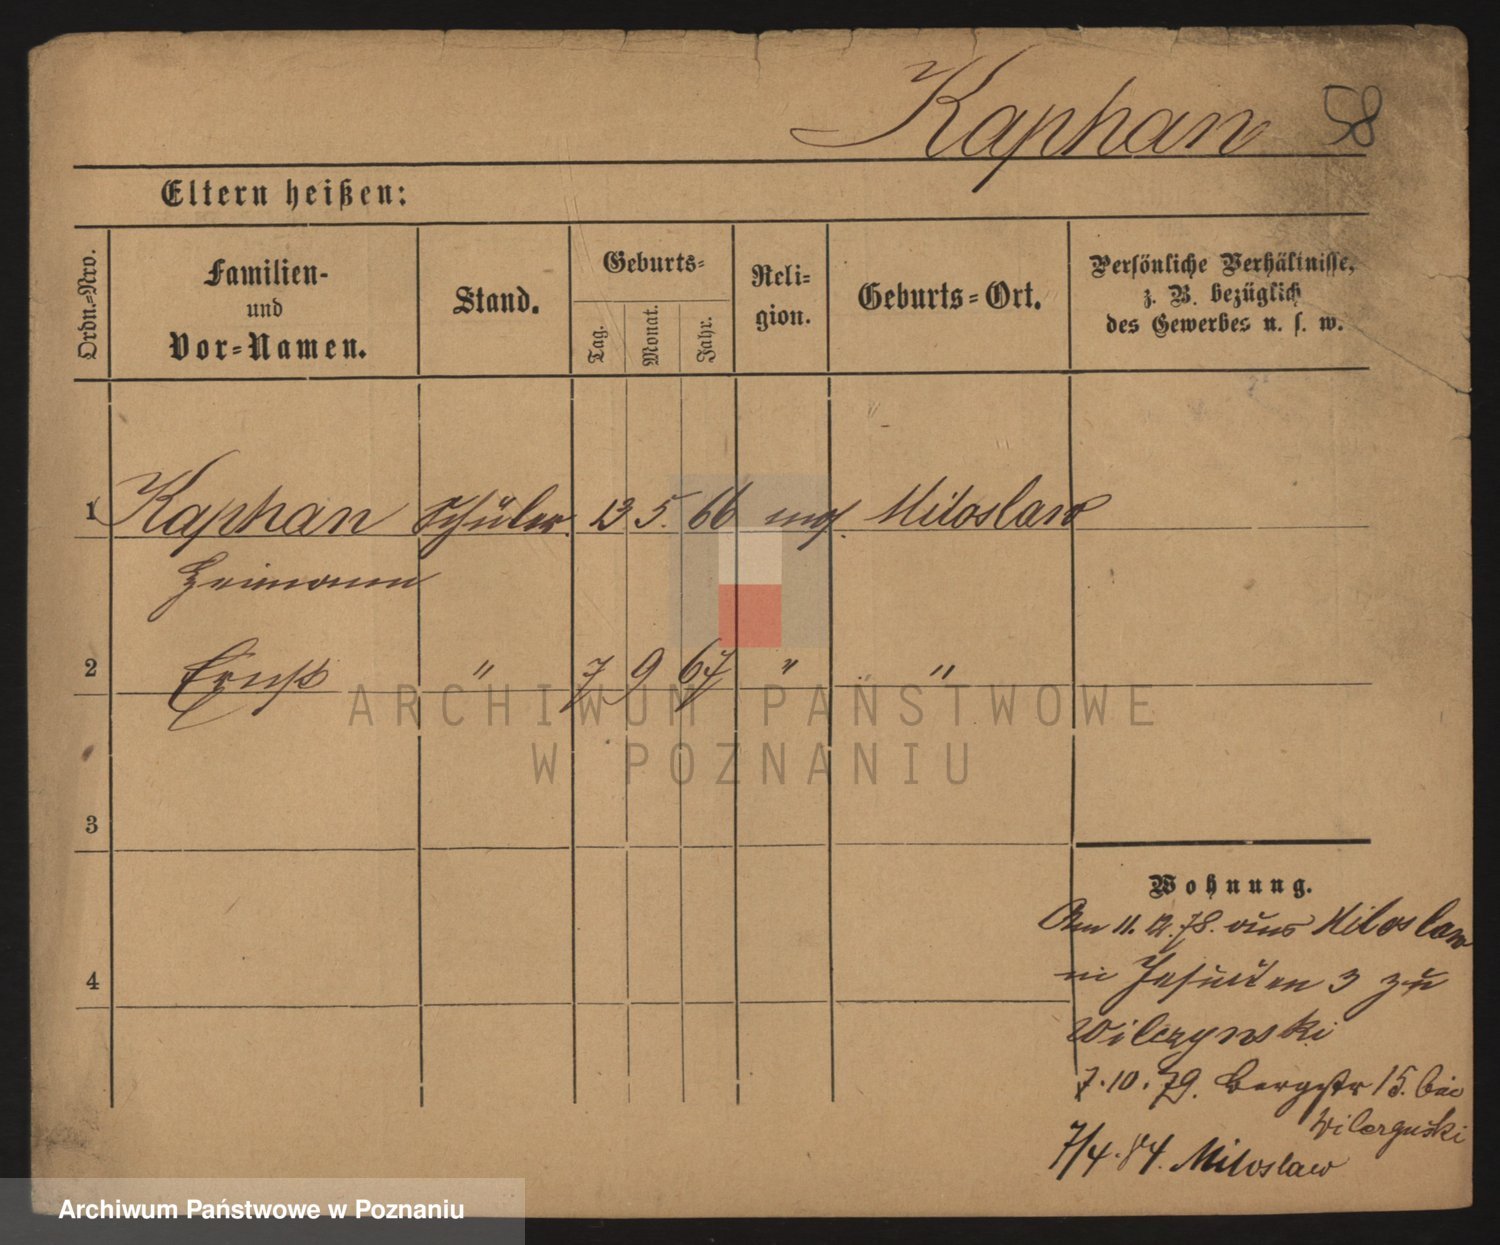 Kaphan 58
Eltern heißen:
Ordn.=Nro.
Familien-
und
Vor=Namen.
Stand.
Geburts=
Tag.
Monat.
Jahr.
Reli=
gion.
Geburts=Ort.
Persönliche Verhältnisse,
z. B. bezüglich
des Gewerbes u. s. w.
1 Kaphan Schüler 13 5. 66 mos. Miloslaw
Heimann
2 Ernst " 7 9 67 " "
3
4
Wohnung.
Am 11. 12. 78. aus Miloslaw
in Jesuiten 3 zu
Wilczynski
7. 10. 79. Bergstr 15. bei
Wilczynski
7/4. 84. Miloslaw
ARCHIWUM PAŃSTWOWE
W POZNANIU
Archiwum Państwowe w Poznaniu